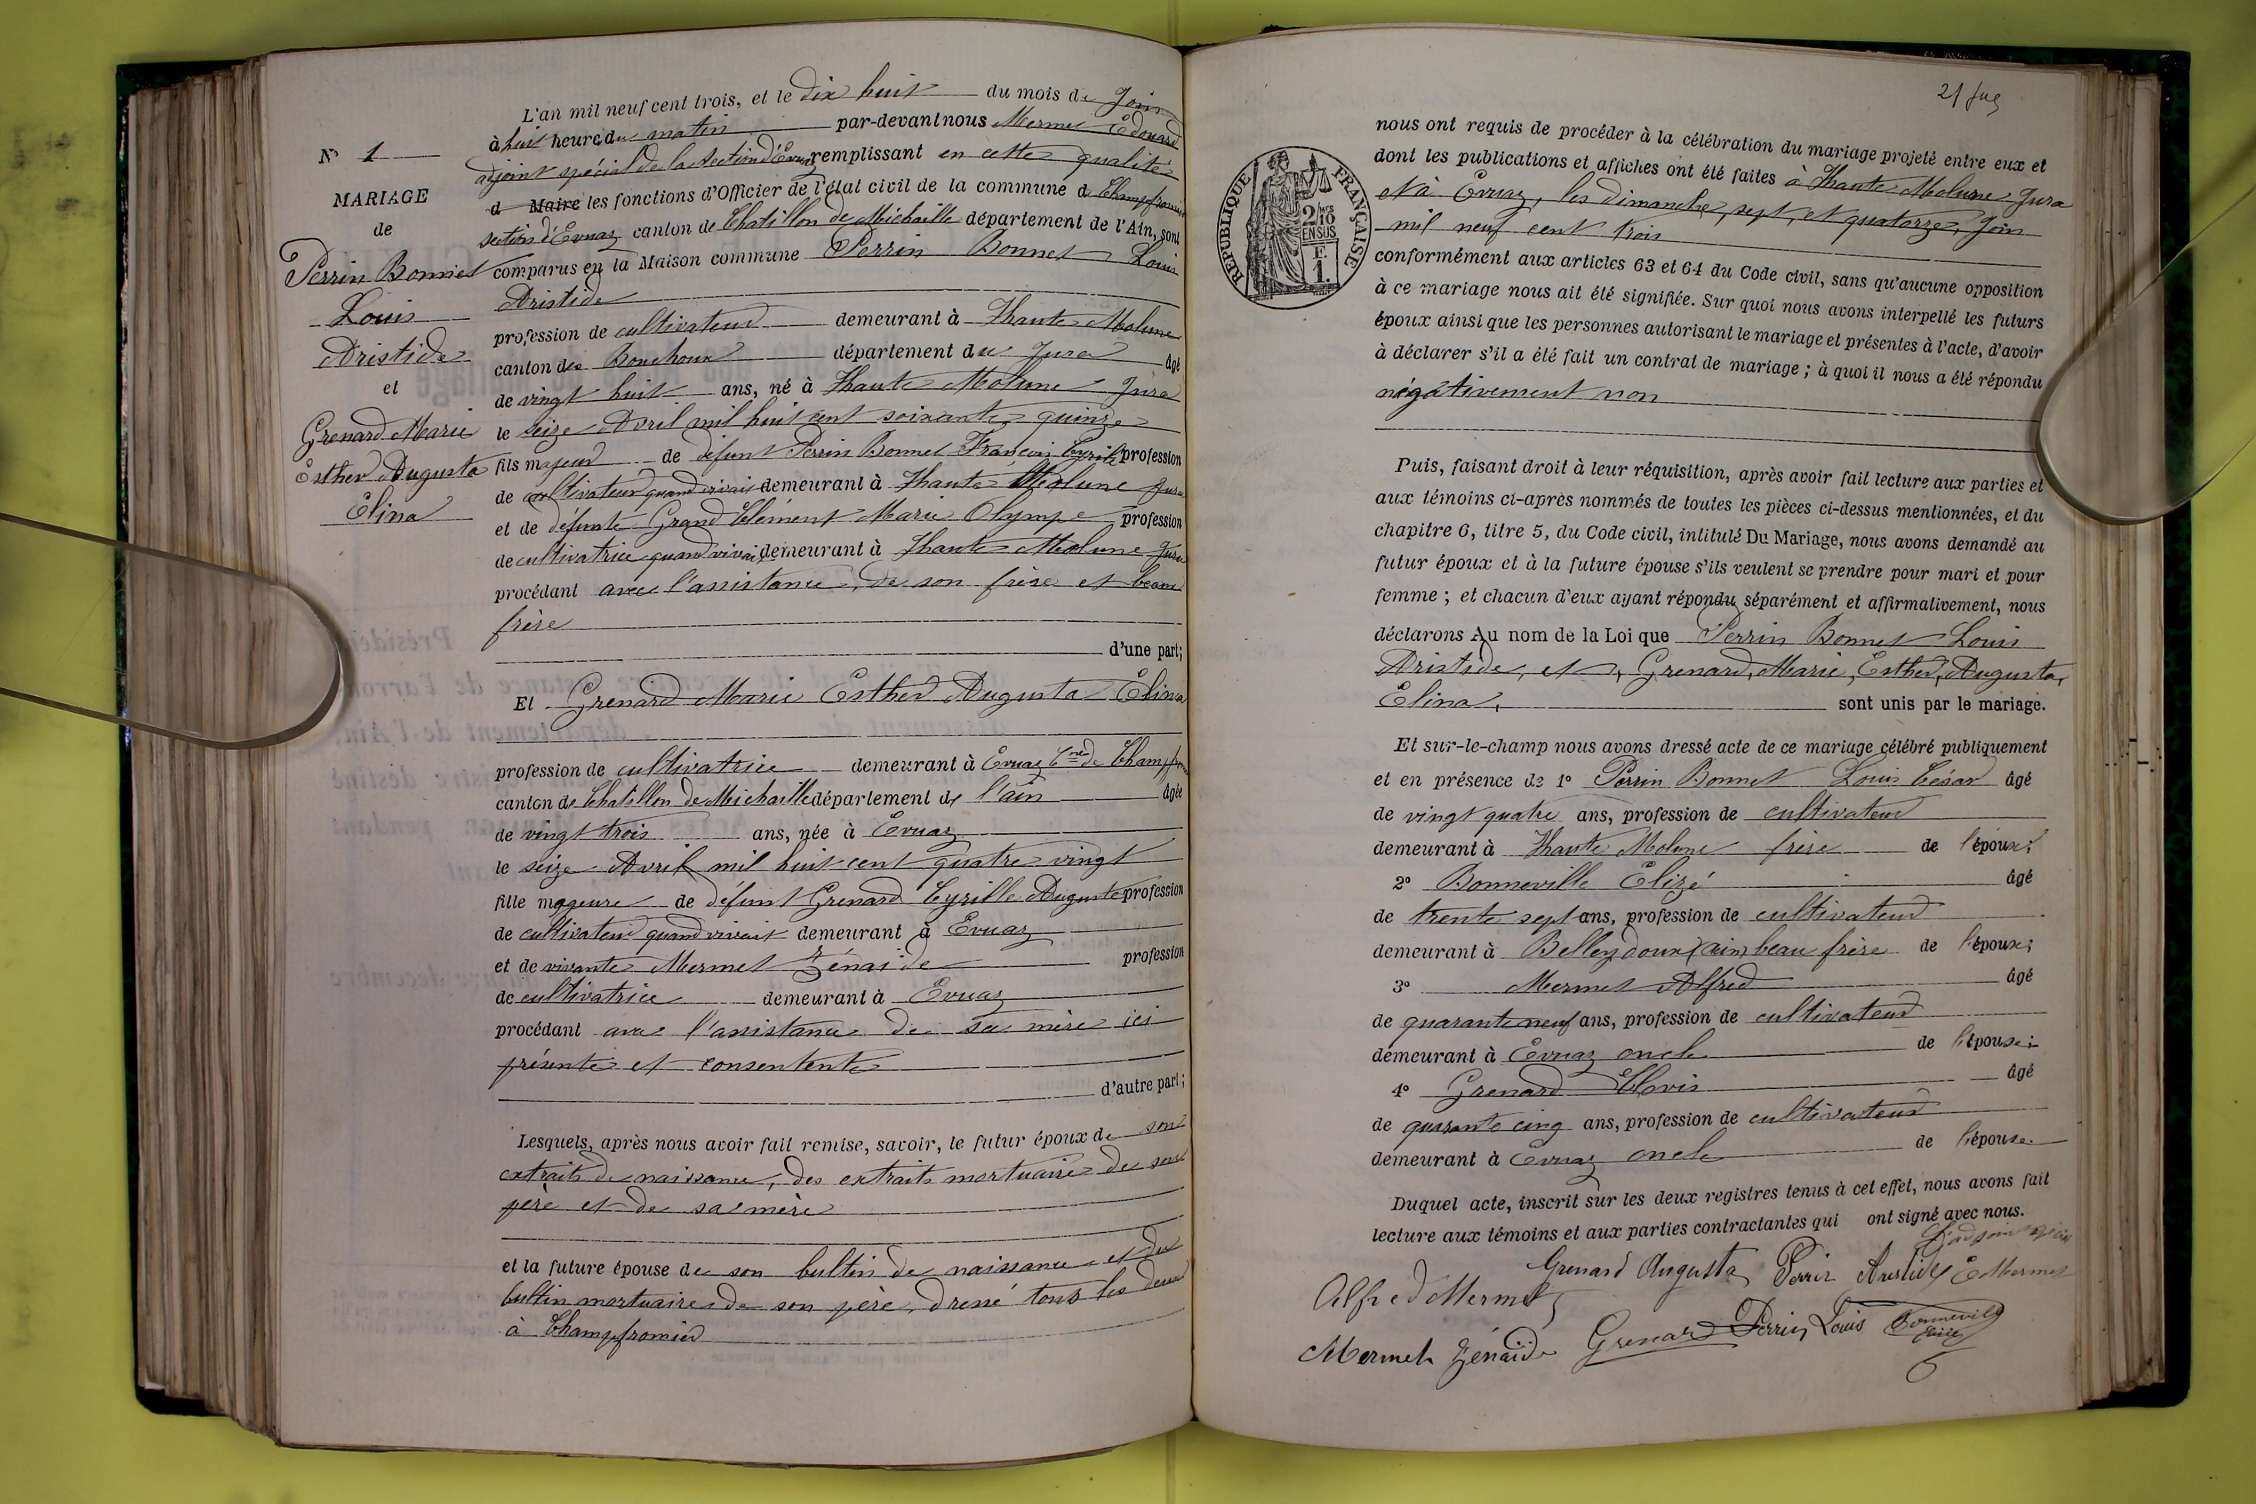 L'an mil neuf cent trois, et le dix huit du mois de Join
à huit heure du matin par-devant nous Mermet Edouard
adjoint spécial de la section d'Evuaz remplissant en cette qualité
d Maire les fonctions d'Officier de l'état civil de la commune de Champfromier
section d'Evuaz canton de Chatillon de Michaille département de l'Ain, sont
comparus en la Maison commune Perrin Bonnet Louis
Aristide
profession de cultivateur demeurant à Haute Molune
canton des Bouchoux département du Jura âgé
de vingt huit ans, né à Haute Molune Jura
le seize Avril mil huit cent soixante quinze
fils majeur de défunt Perrin Bonnet François Cyrille profession
de cultivateur quand vivait demeurant à Haute Molune Jura
et de défunte Grand Clément Marie Olympe profession
de cultivatrice quand vivait demeurant à Haute Molune Jura
procédant avec l'assistance de son frère et beau
frère
d'une part;
Et Grenard Marie Esther Augusta Elina
profession de cultivatrice demeurant à Evuaz Cne de Champfromier
canton de Chatillon de Michaille département de l'ain âgée
de vingt trois ans, née à Evuaz
le seize Avril mil huit cent quatre vingt
fille mageure de défunt Grenard Cyrille Auguste profession
de cultivateur quand vivait demeurant à Evuaz
et de vivante Mermet Zénaide profession
de cultivatrice demeurant à Evuaz
procédant avec l'assistance de sa mère ici
présente et consentente
d'autre part;
Lesquels, après nous avoir fait remise, savoir, le futur époux de son
extrait de naissance, des extraits mortuaire de son
père et de sa mère
et la future épouse de son bultin de naissance et du
bultin mortuaire de son père, dressé tous les deux
à Champfromier
N° 1
MARIAGE
de
Perrin Bonnet
Louis
Aristide
et
Grenard Marie
Esther Augusta
Elina
RÉPUBLIQUE FRANÇAISE
2/10
EN SUS
F.
1.
nous ont requis de procéder à la célébration du mariage projeté entre eux et
dont les publications et affiches ont été faites à Haute Molune Jura
et à Evuaz, les dimanche, sept, et quatorze, Join
mil neuf cent trois
conformément aux articles 63 et 64 du Code civil, sans qu'aucune opposition
à ce mariage nous ait été signifiée. Sur quoi nous avons interpellé les futurs
époux ainsi que les personnes autorisant le mariage et présentes à l'acte, d'avoir
à déclarer s'il a été fait un contrat de mariage; à quoi il nous a été répondu
négativement non
Puis, faisant droit à leur réquisition, après avoir fait lecture aux parties et
aux témoins ci-après nommés de toutes les pièces ci-dessus mentionnées, et du
chapitre 6, titre 5, du Code civil, intitulé Du Mariage, nous avons demandé au
futur époux et à la future épouse s'ils veulent se prendre pour mari et pour
femme; et chacun d'eux ayant répondu séparément et affirmativement, nous
déclarons Au nom de la Loi que Perrin Bonnet Louis
Aristide, et, Grenard, Marie, Esther, Augusta,
Elina, sont unis par le mariage.
Et sur-le-champ nous avons dressé acte de ce mariage célébré publiquement
et en présence de 1° Perrin Bonnet Louis César âgé
de vingt quatre ans, profession de cultivateur
demeurant à Haute Molune frère de l'époux;
2° Bonneville Elizé âgé
de trente sept ans, profession de cultivateur
demeurant à Belleydoux (ain) beau frère de l'époux;
3° Mermet Alfred âgé
de quarante neuf ans, profession de cultivateur
demeurant à Evuaz oncle de l'épouse;
4° Grenard Clovis âgé
de quarante cinq ans, profession de cultivateur
demeurant à Evuaz oncle de l'épouse
Duquel acte, inscrit sur les deux registres tenus à cet effet, nous avons fait
lecture aux témoins et aux parties contractantes qui ont signé avec nous.
L'adjoint spécial
Grenard Augusta Perrin Aristide E Mermet
Alfred Mermet
Mermet Zénaide Grenard Perrin Louis Bonneville